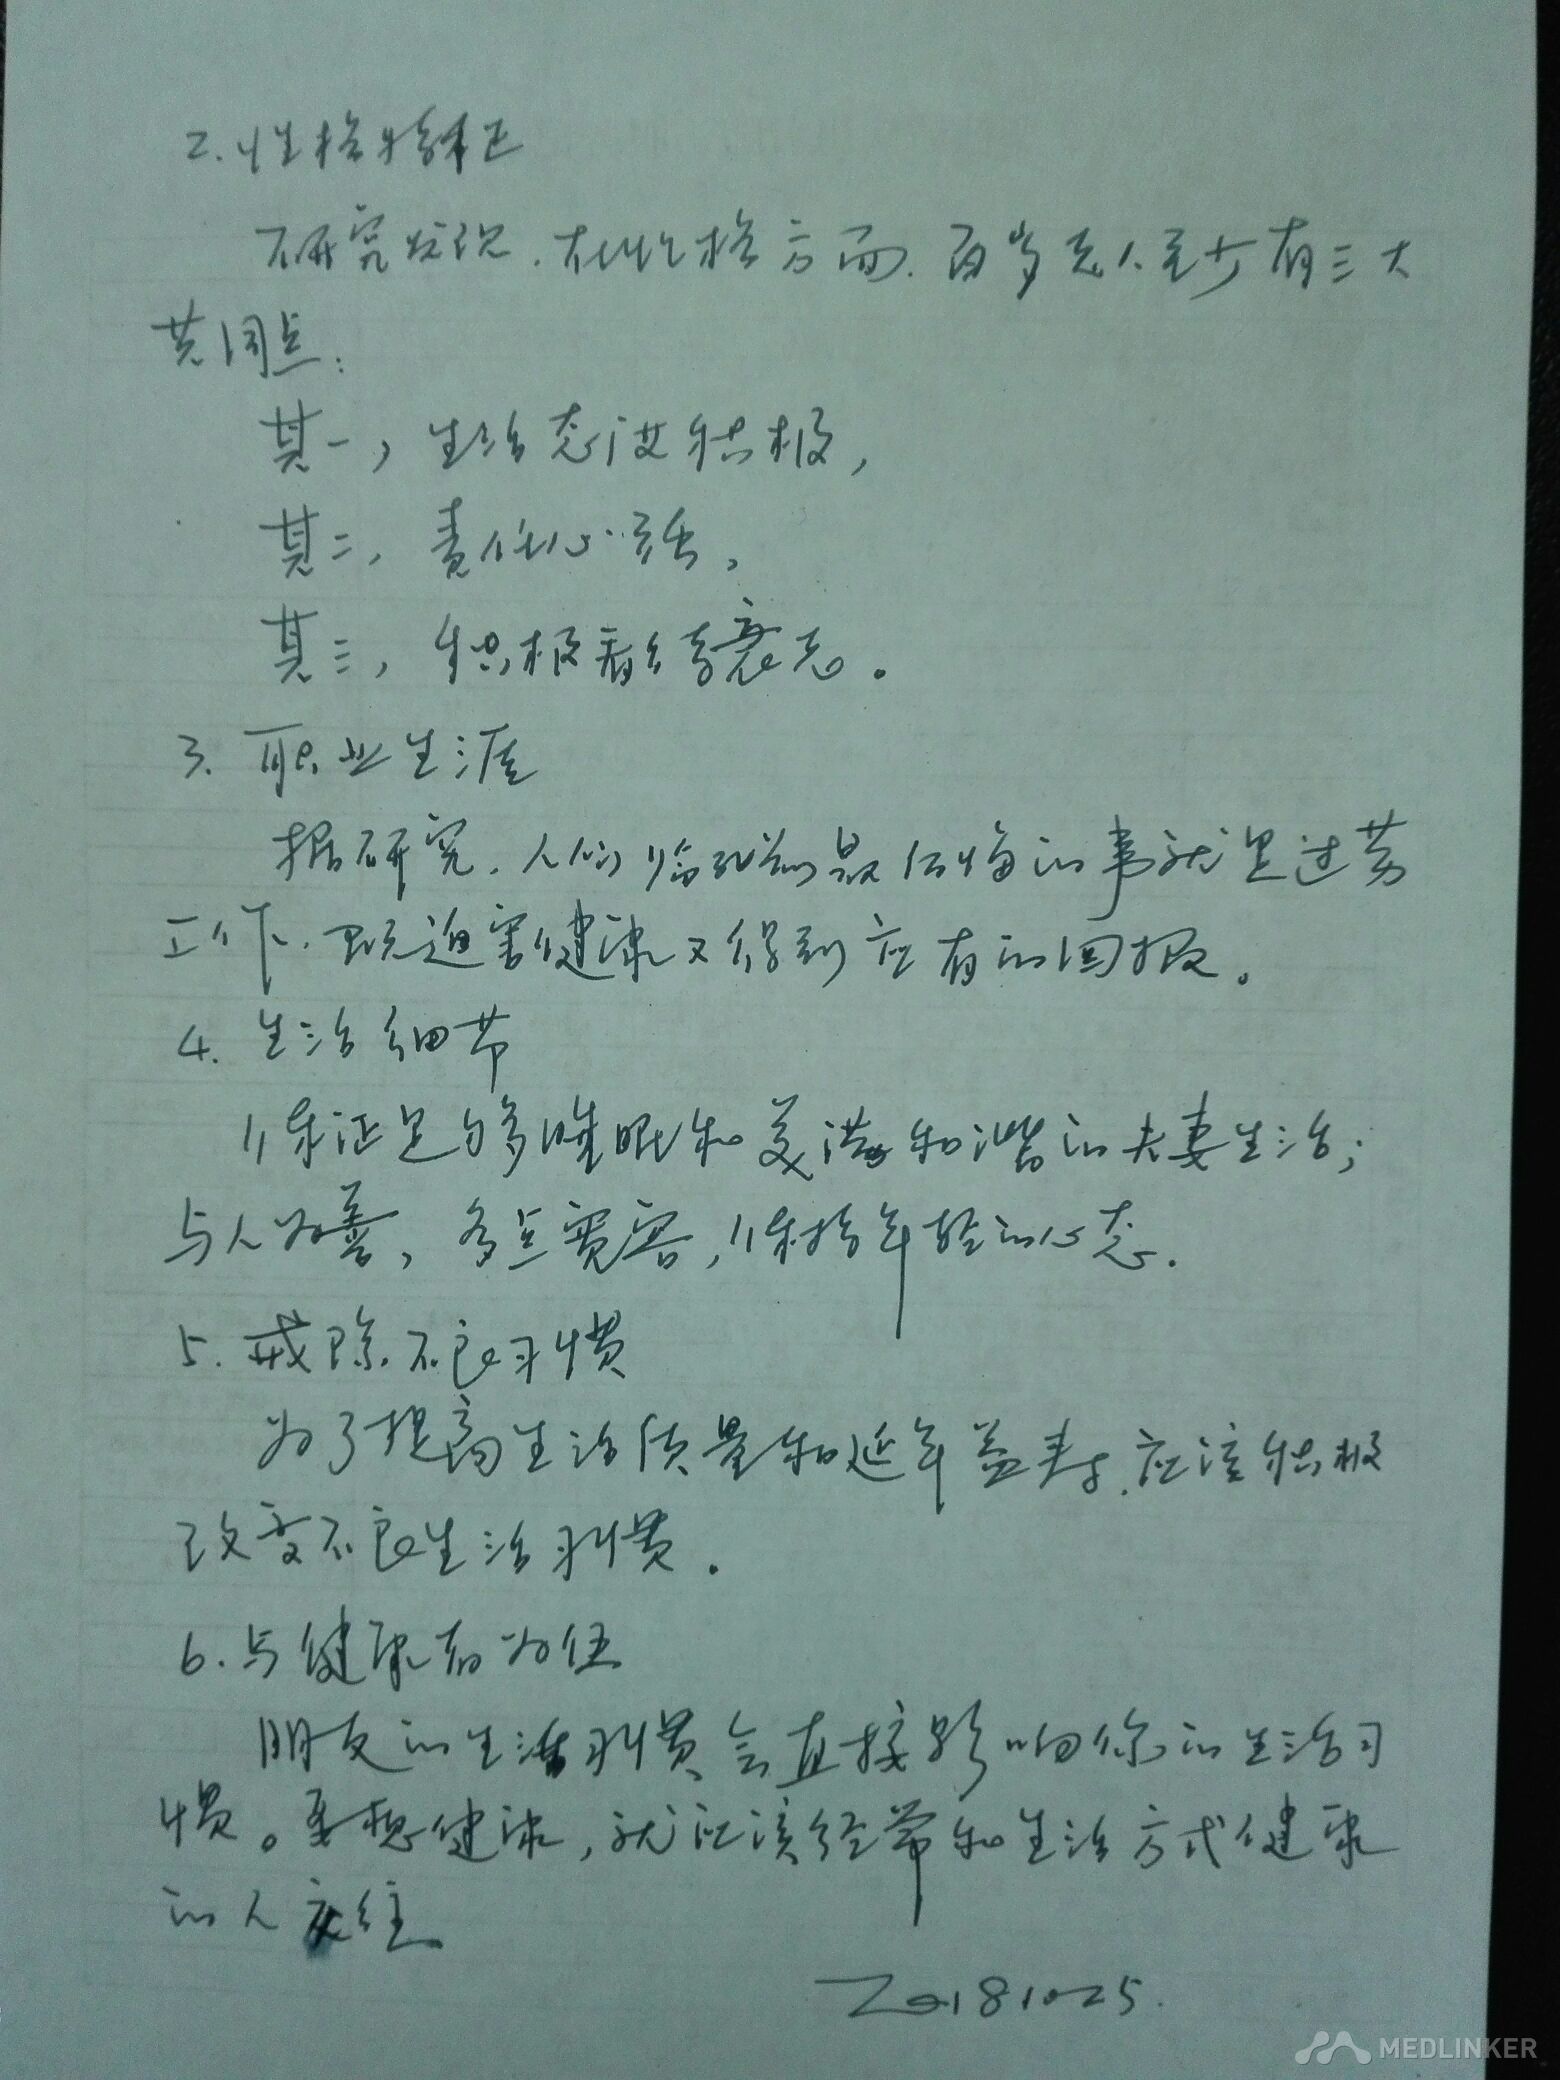 2.性格矫正
研究发现.在性格方面.百岁老人至少有三大
共同点:
其一,生活态度积极,
其二,责任心强,
其三,积极看待衰老。
3.职业生涯
据研究.人们临死前最后悔的事就是过劳
工作.既迫害健康又得到应有的回报。
4.生活细节
保证足够睡眠和美满和谐的夫妻生活;
与人为善,多点宽容,保持年轻的心态.
5.戒除不良习惯
为了提高生活质量和延年益寿.应该积极
改变不良生活习惯.
6.与健康者为伍
朋友的生活习惯会直接影响你的生活习
惯。要想健康,就应该经常和生活方式健康
的人交往。
20181025.
MEDLINKER